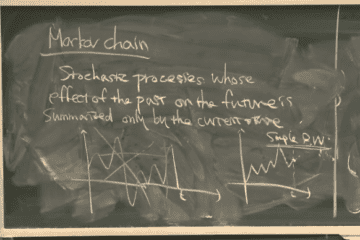 Markov chain
Stochastic processes whose
effect of the past on the future is
summarized only by the current state
Simple R.W.